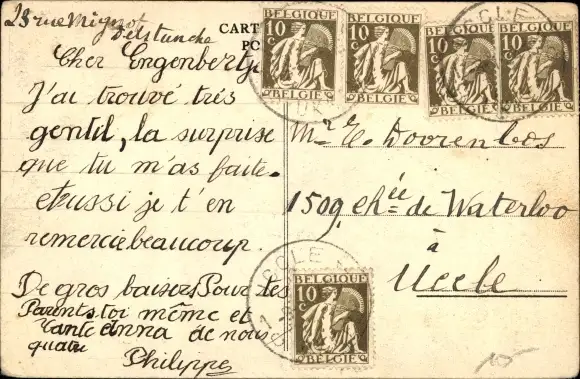 23 rue Mignot
Delstanche
CART
PO
Cher Engenbert
J'ai trouvé très
gentil, la surprise
que tu m'as faite.
Aussi je t'en
remercie beaucoup.
De gros baisers Pour tes
Parents, toi même et
tante Anna de nous
quatre
Philippe
BELGIQUE
10 C
BELGIE
BELGIQUE
10 C
BELGIE
BELGIQUE
10 C
BELGIE
BELGIQUE
10 C
BELGIE
CCLE
Mr Doorenbos
1509, chée de Waterloo
à
Uccle
BELGIQUE
10 C
BELGIE